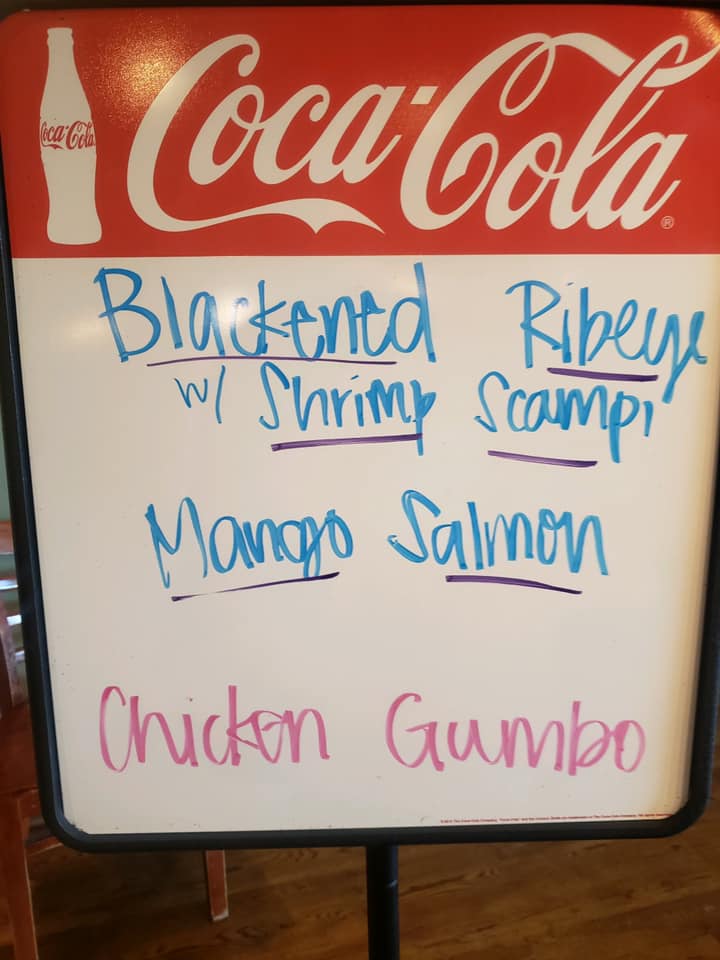 Coca-Cola
Coca-Cola®
Blackened Ribeye
w/ Shrimp Scampi
Mango Salmon
Chicken Gumbo